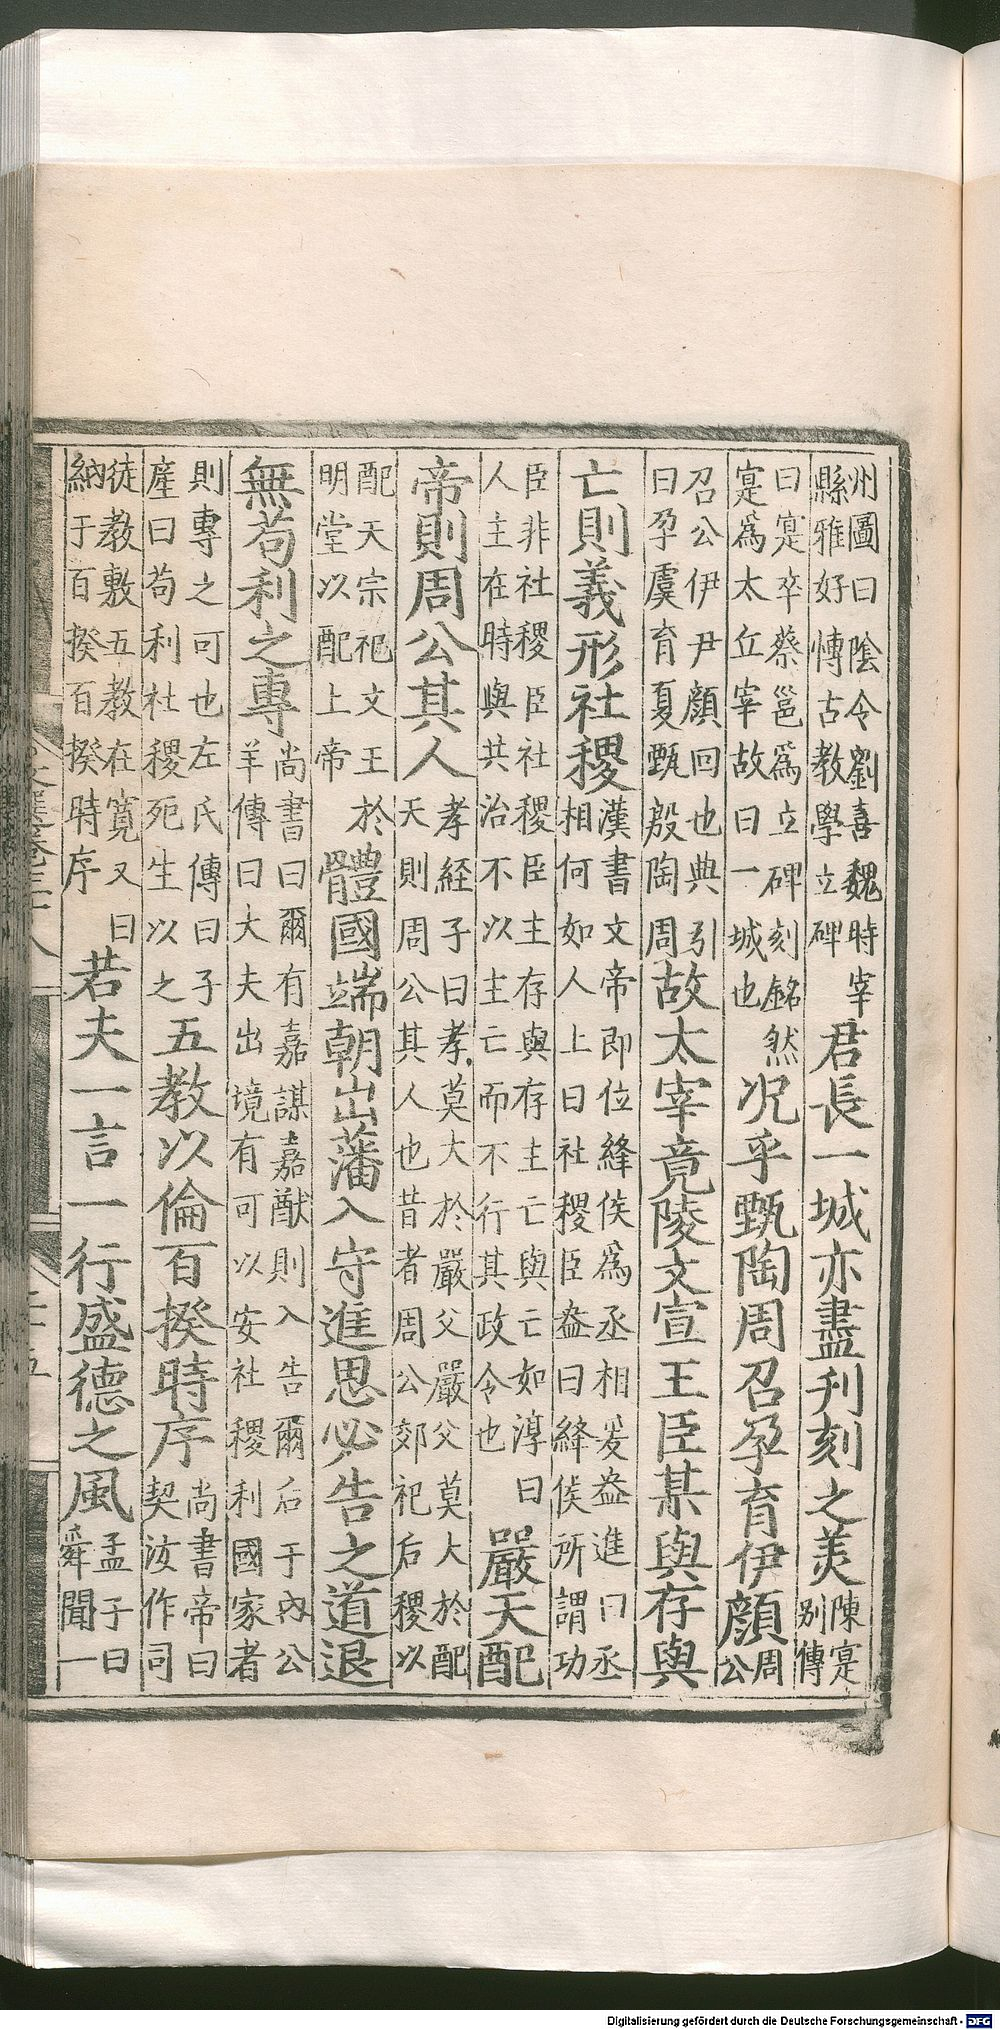 州圖曰陰令劉喜魏時宰
縣雅好慱古教學立碑
君長一城亦盡刋刻之美
陳寔
別傳
曰寔卒蔡邕爲立碑刻銘然
寔爲太丘宰故曰一城也
况乎甄陶周召孕育伊顏
周
公
召公伊尹顏回也典引
曰孕虞育夏甄殷陶周
故太宰竟陵文宣王臣某與存與
亡則義形社稷
漢書文帝即位絳侯爲丞相爰盎進曰丞
相何如人上曰社稷臣盎曰絳侯所謂功
臣非社稷臣社稷臣主存與存主亡與亡如淳曰
人主在時與共治不以主亡而不行其政令也
嚴天配
帝則周公其人
孝経子曰孝莫大於嚴父嚴父莫大於配
天則周公其人也昔者周公郊祀后稷以
配天宗祀文王於
明堂以配上帝
體國端朝出藩入守進思必告之道退
無苟利之專
尚書曰爾有嘉謀嘉猷則入告爾后于內公
羊傳曰大夫出境有可以安社稷利國家者
則專之可也左氏傳曰子
產曰苟利社稷死生以之
五教以倫百揆時序
尚書帝曰
契汝作司
徒教敷五教在寛又曰
納于百揆百揆時序
若夫一言一行盛德之風
孟子曰
舜聞一
文選卷三十八
二十五
Digitalisierung gefördert durch die Deutsche Forschungsgemeinschaft - DFG